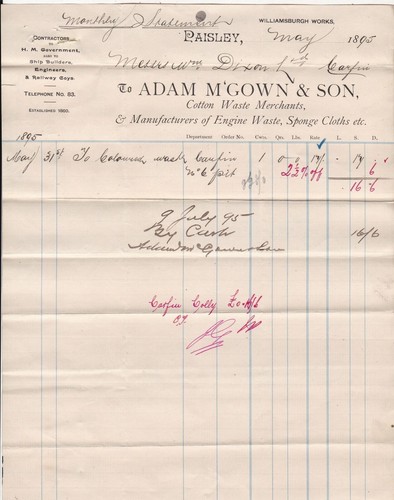 Monthly Statement
WILLIAMSBURGH WORKS.
CONTRACTORS
TO
H. M. Government,
ALSO TO
Ship Builders,
Engineers,
& Railway Coys.
TELEPHONE No. 83.
ESTABLISHED 1860.
PAISLEY, May 1895
Messrs Wm Dixon Ltd Carfin
To ADAM McGOWN & SON,
Cotton Waste Merchants,
& Manufacturers of Engine Waste, Sponge Cloths etc.
1895 Department Order No. Cwts. Qrs. Lbs. Rate L. S. D.
May 31st To Coloured waste Carfin 1 0 0 17/- . 17 .
No 6 pit 2½% off 6
16 6
9 July 95
By Cash 16/6
Adam McGown & Son
Carfin Colly £0.16/6